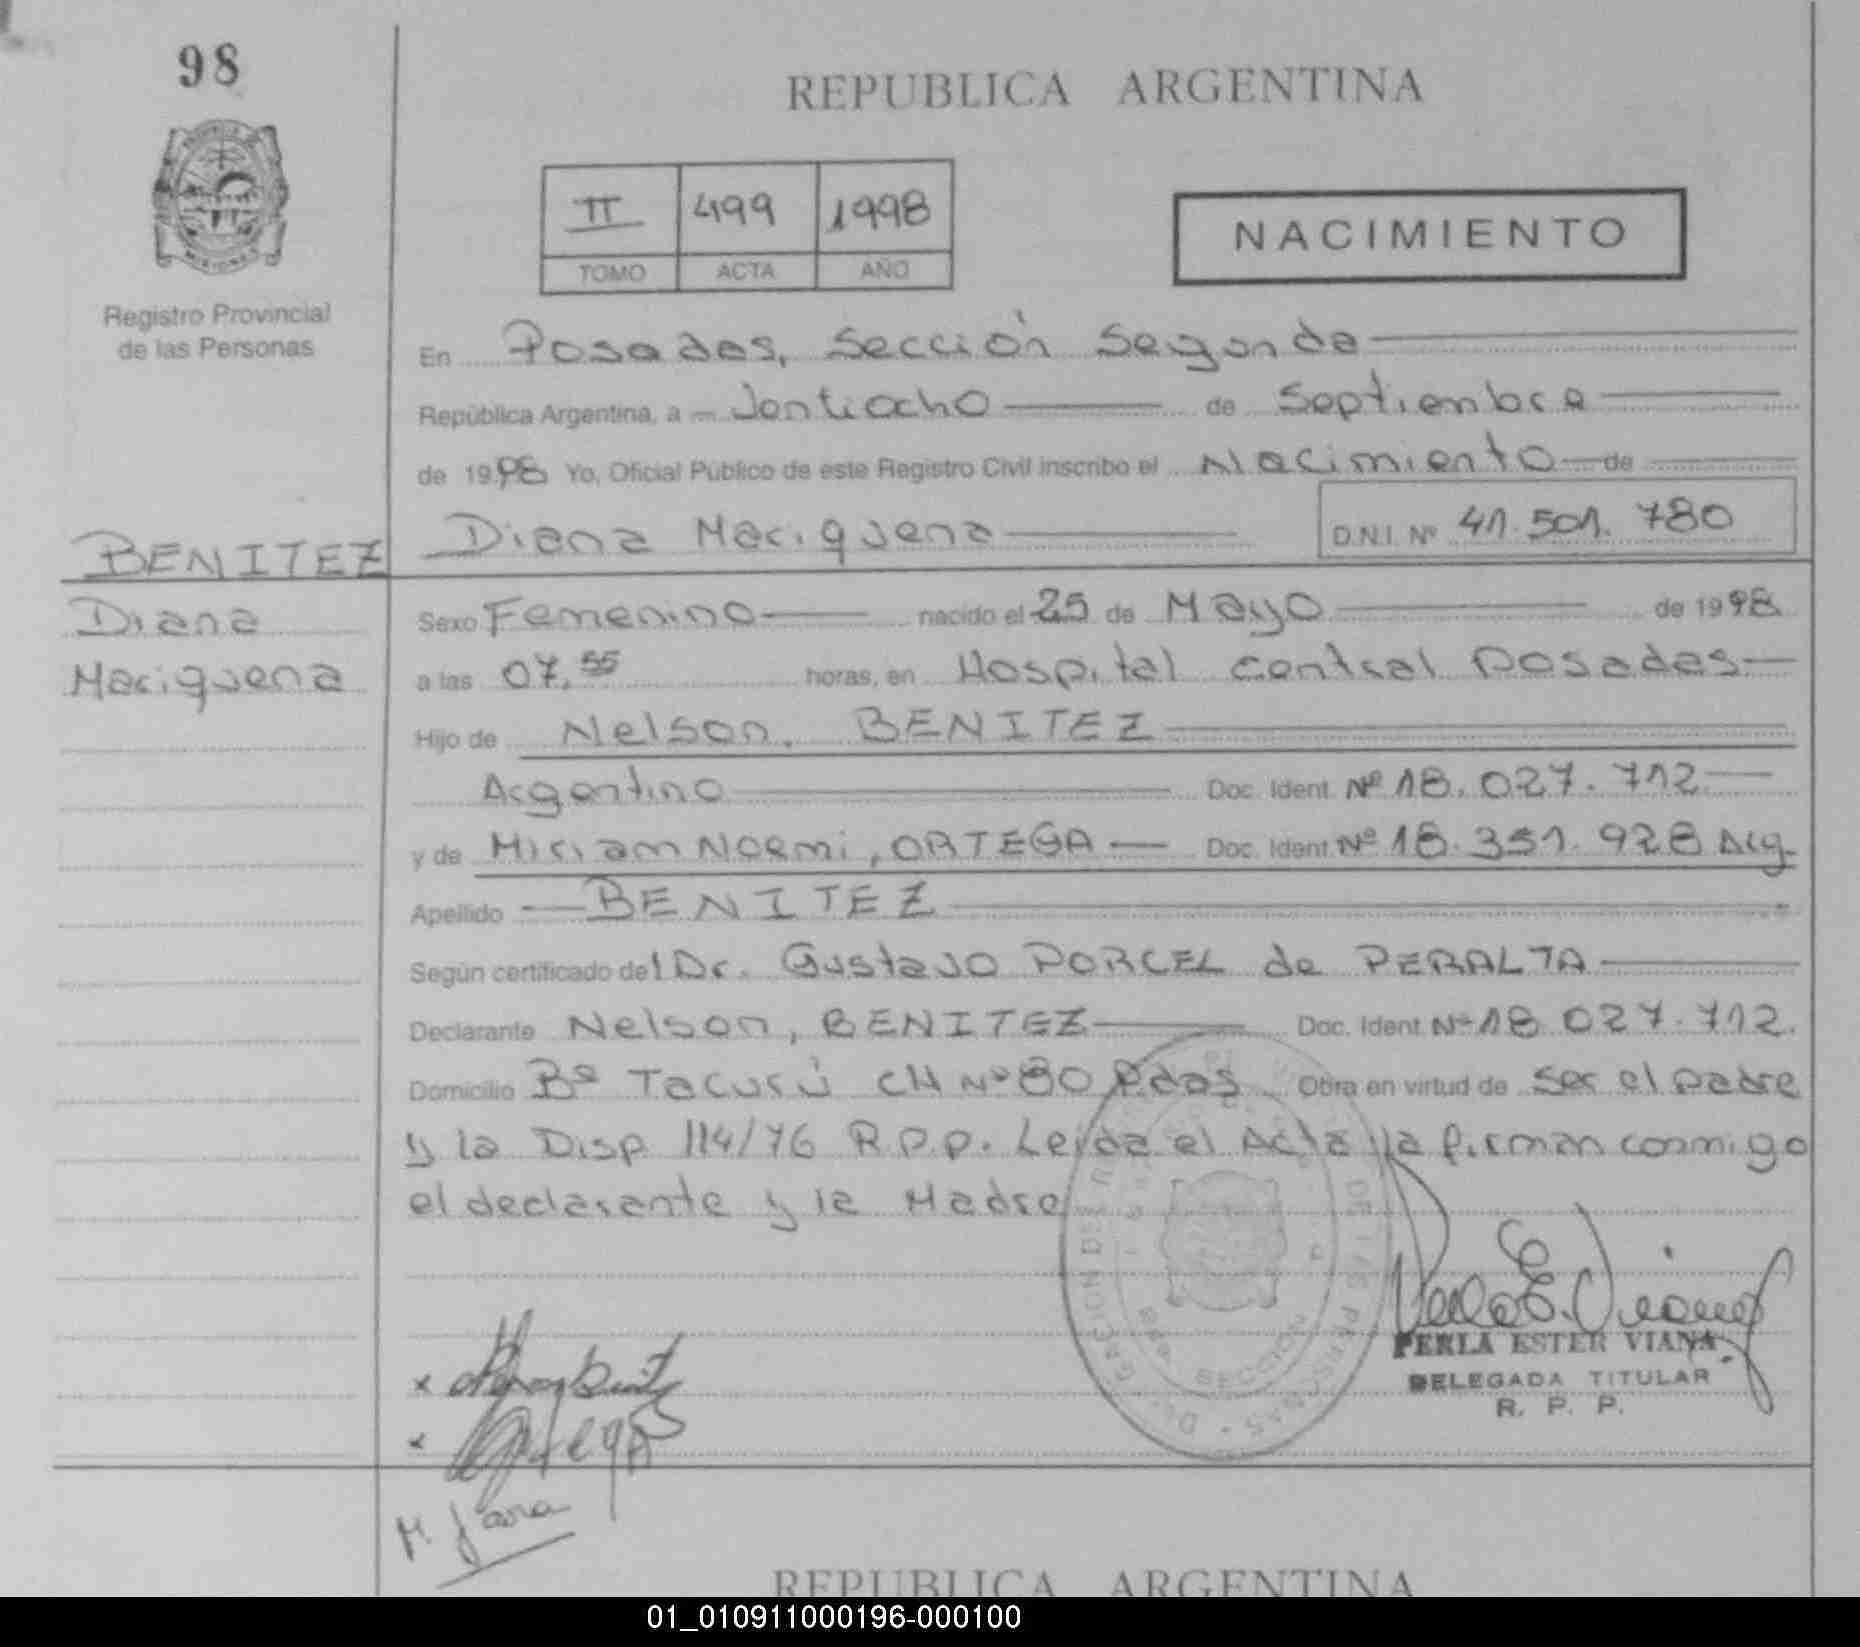 98
REPUBLICA ARGENTINA
II 499 1998
TOMO ACTA AÑO
NACIMIENTO
MISIONES
Registro Provincial
de las Personas
En Posadas, Sección Segunda
República Argentina, a Veintiocho de Septiembre
de 1998 Yo, Oficial Público de este Registro Civil inscribo el Nacimiento de
BENITEZ
Diana Mariquena D.N.I. Nº 41.501.780
Diana
Mariquena
Sexo Femenino nacido el 25 de Mayo de 1998
a las 07,55 horas, en Hospital Central Posadas
Hijo de Nelson, BENITEZ
Argentino Doc. Ident. Nº 18.027.712
y de Miriam Noemi, ORTEGA Doc. Ident. Nº 18.351.928 Arg.
Apellido BENITEZ
Según certificado del Dr. Gustavo PORCEL de PERALTA
Declarante Nelson, BENITEZ Doc. Ident Nº 18.027.712.
Domicilio Bº Tacurú CH Nº 80 Pdas Obra en virtud de ser el padre
y la Disp 114/76 R.P.P. Leída el Acta la firman conmigo
el declarante y la Madre
PERLA ESTER VIANA
DELEGADA TITULAR
R. P. P.
SECCION
M. Jara
REPUBLICA ARGENTINA
01_010911000196-000100